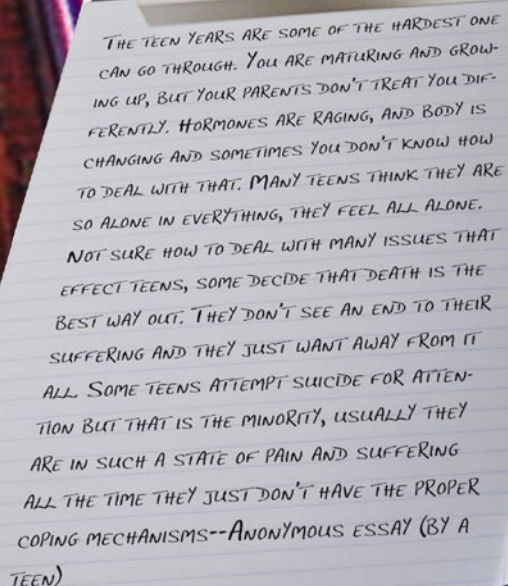 THE TEEN YEARS ARE SOME OF THE HARDEST ONE
CAN GO THROUGH. YOU ARE MATURING AND GROW-
ING UP, BUT YOUR PARENTS DON'T TREAT YOU DIF-
FERENTLY. HORMONES ARE RAGING, AND BODY IS
CHANGING AND SOMETIMES YOU DON'T KNOW HOW
TO DEAL WITH THAT. MANY TEENS THINK THEY ARE
SO ALONE IN EVERYTHING, THEY FEEL ALL ALONE.
NOT SURE HOW TO DEAL WITH MANY ISSUES THAT
EFFECT TEENS, SOME DECIDE THAT DEATH IS THE
BEST WAY OUT. THEY DON'T SEE AN END TO THEIR
SUFFERING AND THEY JUST WANT AWAY FROM IT
ALL. SOME TEENS ATTEMPT SUICIDE FOR ATTEN-
TION BUT THAT IS THE MINORITY, USUALLY THEY
ARE IN SUCH A STATE OF PAIN AND SUFFERING
ALL THE TIME THEY JUST DON'T HAVE THE PROPER
COPING MECHANISMS--ANONYMOUS ESSAY (BY A
TEEN)